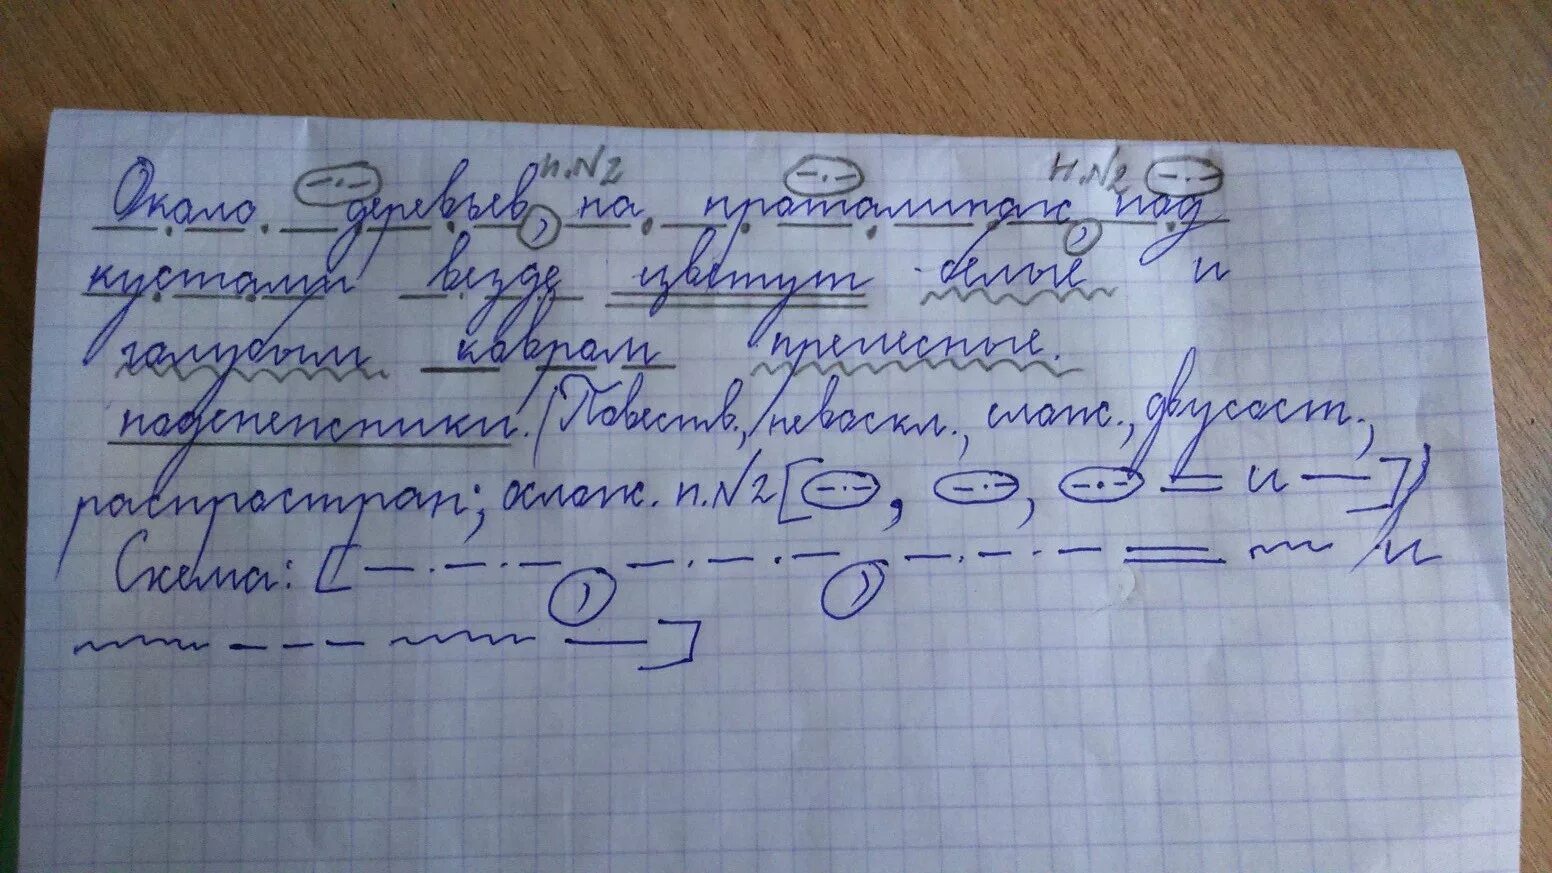 н.№2 н.№2
Около деревьев, на проталинах, под
кустами везде цветут белые и
голубым ковром прелесные
подснежники. (Повеств., невоскл., слож., двусост.,
распростран; ослож. п.№2 [ , , и ])
Схема: [ , , и
]